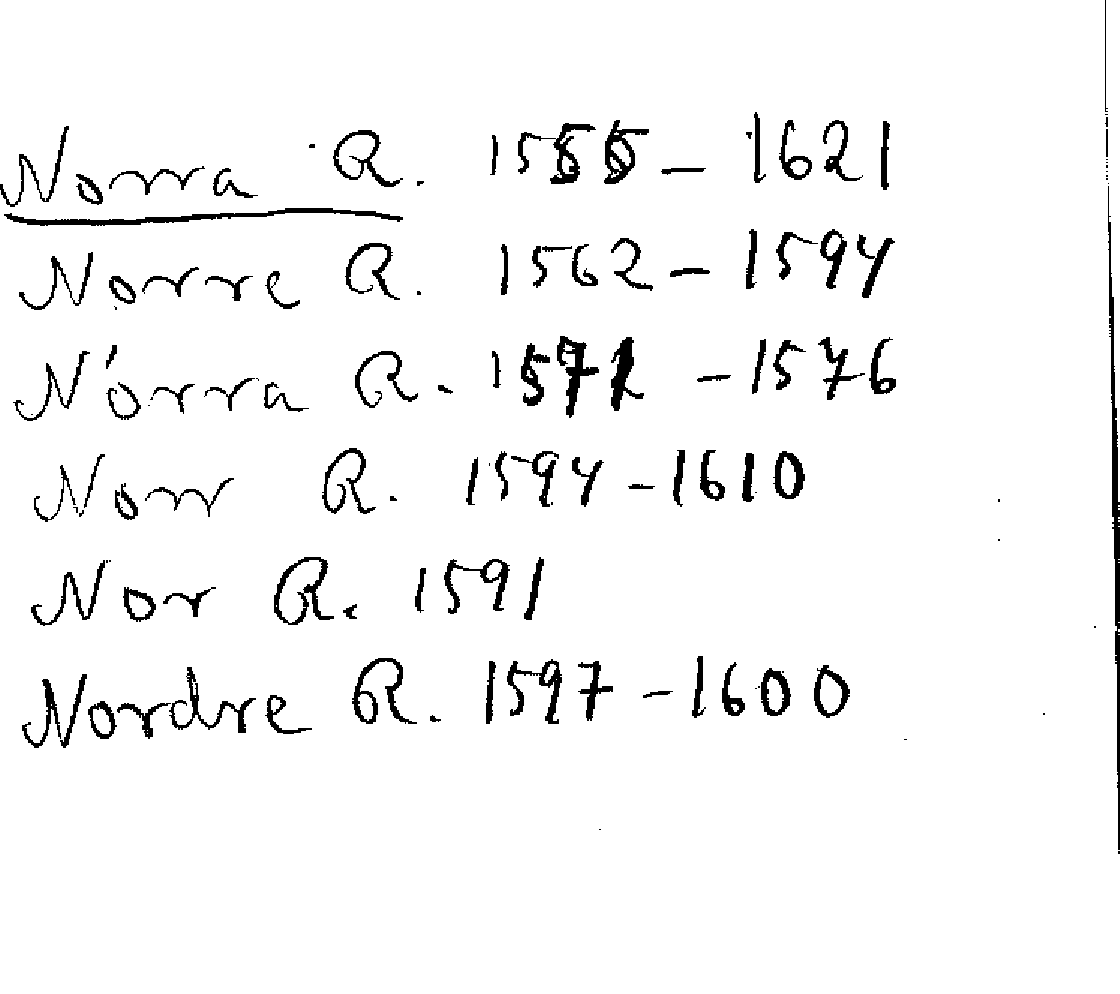 Norra R. 1555 – 1621
Norre R. 1562 – 1594
Nórra R. 1571 – 1576
Norr R. 1594 – 1610
Nor R. 1591
Nordre R. 1597 – 1600